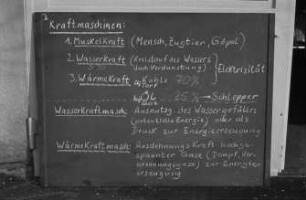 Kraftmaschinen:
1. Muskelkraft (Mensch, Zugtier, Göpel)
2. Wasserkraft (Kreislauf des Wassers
Verdunstung) Elektrizität
3. Wärmekraft Kohle 70%
Torf
Öl 25% → Schlepper
Wasserkraftmasch: Ausnutzg des Wassergefälles
(potentielle Energie) oder als
Druck zur Energieerzeugung
Wärmekraftmasch: Ausdehnungskraft hochge-
spannter Gase (Dampf, Ver-
brennungsgase) zur Energie-
erzeugung